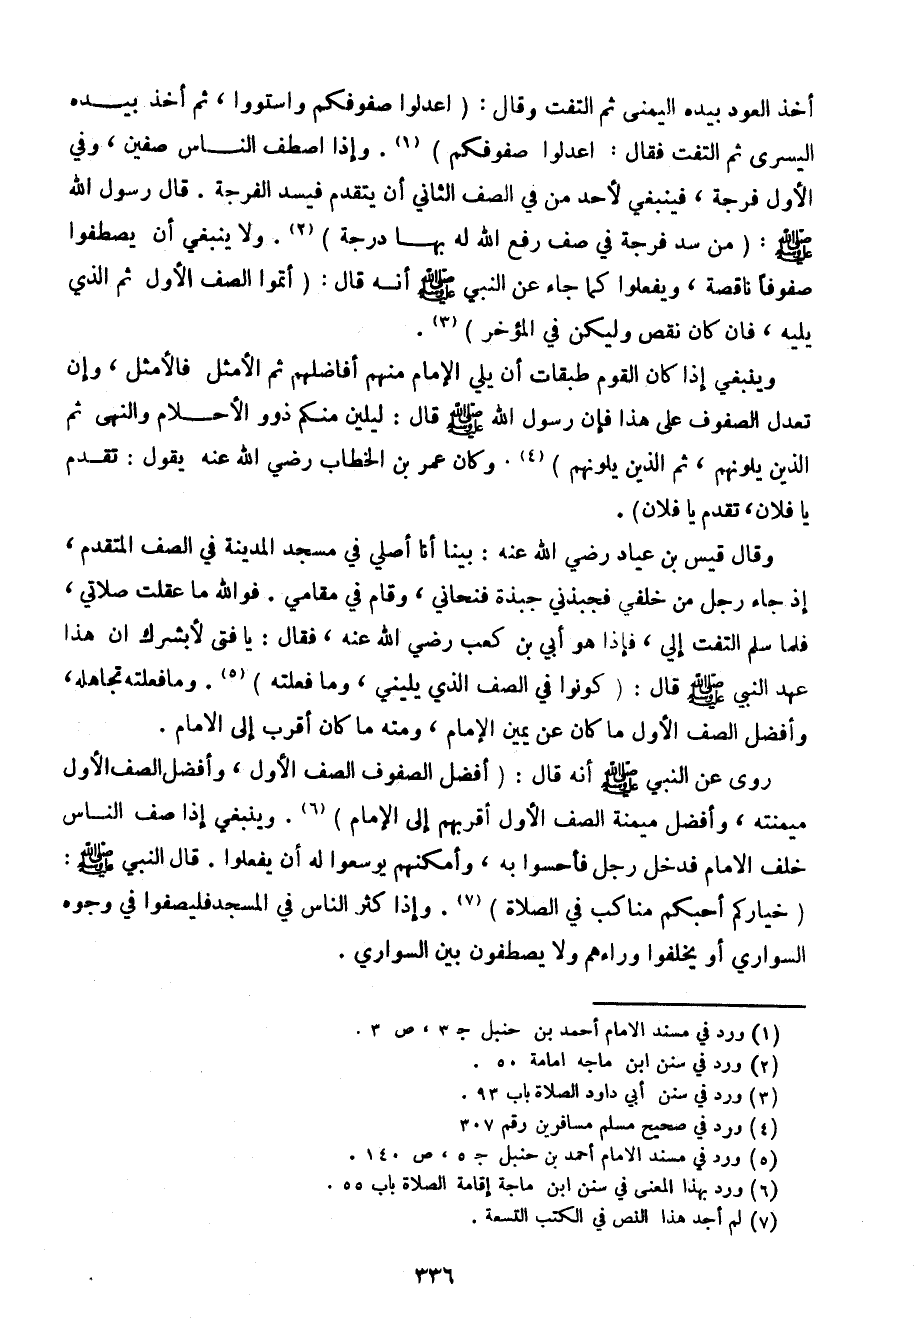 أخذ العود بيده اليمنى ثم التفت وقال : ( اعدلوا صفوفكم واستووا ، ثم أخذ بيـــده
اليسرى ثم التفت فقال : اعدلوا صفوفكم ) (١) . وإذا اصطف النـــاس صفين ، وفي
الأول فرجة ، فينبغي لأحد من في الصف الثاني أن يتقدم فيسد الفرجة . قال رسول الله
ﷺ : ( من سد فرجة في صف رفع الله له بهـــا درجة ) (٢) . ولا ينبغي أن يصطفوا
صفوفاً ناقصة ، ويفعلوا كما جاء عن النبي ﷺ أنـه قال : ( أتموا الصف الأول ثم الذي
يليه ، فان كان نقص وليكن في المؤخر ) (٣) .
وينبغي إذا كان القوم طبقات أن يلي الإمام منهم أفاضلهم ثم الأمثل فالأمثل ، وإن
تعدل الصفوف على هذا فإن رسول الله ﷺ قال : ليلين منكم ذوو الأحـــلام والنهى ثم
الذين يلونهم ، ثم الذين يلونهم ) (٤) . وكان عمر بن الخطاب رضي الله عنه يقول : تقـدم
يا فلان، تقدم يا فلان) .
وقال قيس بن عباد رضي الله عنه : بينا أنا أصلي في مسجد المدينة في الصف المتقدم ،
إذ جاء رجل من خلفي فجبذني جبذة فنحاني ، وقام في مقامي . فوالله ما عقلت صلاتي ،
فلما سلم التفت إلي ، فإذا هو أبي بن كعب رضي الله عنه ، فقال : يا فتى لأبشرك ان هذا
عهد النبي ﷺ قال : ( كونوا في الصف الذي يليني ، وما فعلته ) (٥) . ومافعلته تجاهله،
وأفضل الصف الأول ما كان عن يمين الإمام ، ومنه ما كان أقرب إلى الامام .
روى عن النبي ﷺ أنه قال : ( أفضل الصفوف الصف الأول ، وأفضل الصف الأول
ميمنته ، وأفضل ميمنة الصف الأول أقربهم إلى الإمام ) (٦) . وينبغي إذا صف النـاس
خلف الامام فدخل رجل فأحسوا به ، وأمكنهم يوسعوا له أن يفعلوا . قال النبي ﷺ :
( خياركم أحبكم مناكب في الصلاة ) (٧) . وإذا كثر الناس في المسجد فليصفوا في وجوه
السواري أو يخلفوا وراءهم ولا يصطفون بين السواري .
(١) ورد في مسند الامام أحمد بن حنبل ج ٣ ، ص ٣ .
(٢) ورد في سنن ابن ماجه امامة ٥٠ .
(٣) ورد في سنن أبي داود الصلاة باب ٩٣ .
(٤) ورد في صحيح مسلم مسافرين رقم ٣٠٧
(٥) ورد في مسند الامام أحمد بن حنبل ج ٥ ، ص ١٤٠ .
(٦) ورد بهذا المعنى في سنن ابن ماجة إقامة الصلاة باب ٥٥ .
(٧) لم أجد هذا النص في الكتب التسعة .
٣٣٦